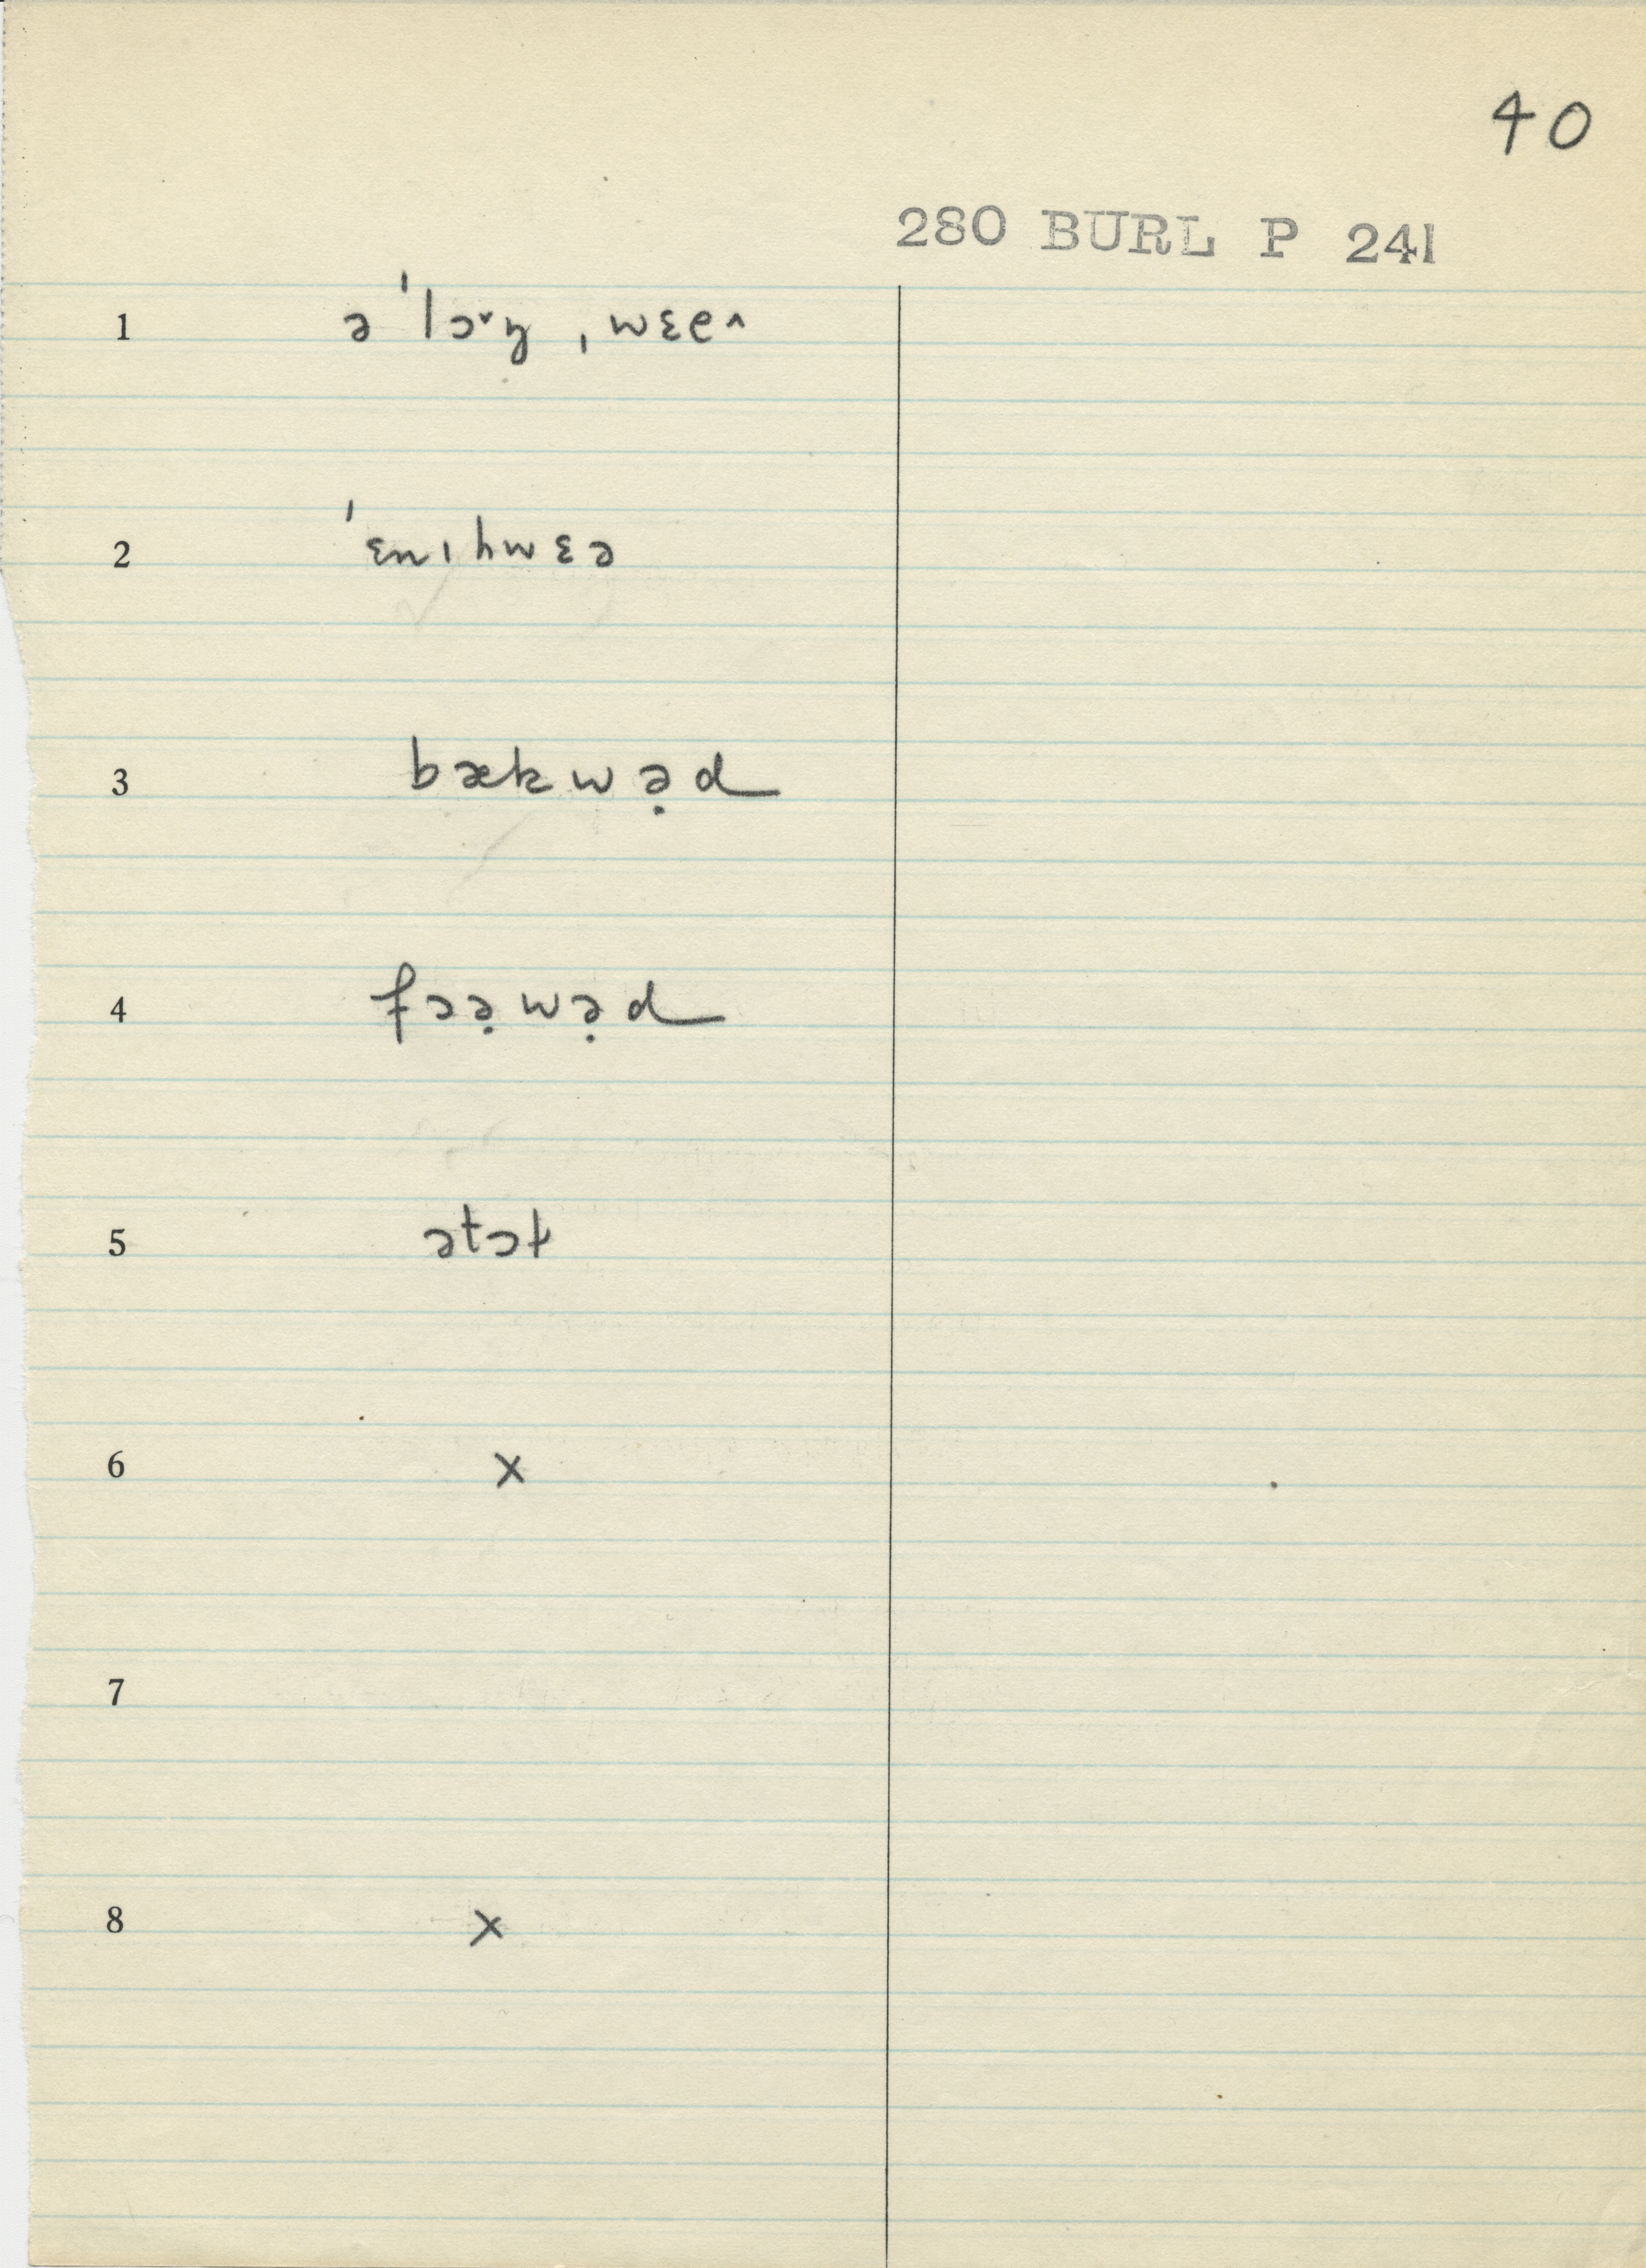 40
280 BURL P 241
1 əˈlɔ˅ŋ ˌwɛə^
2 ˈɛnɪhwɛə
3 bækwə̣d
4 fɔə̣wə̣d
5 ətɔt
6 x
7
8 x